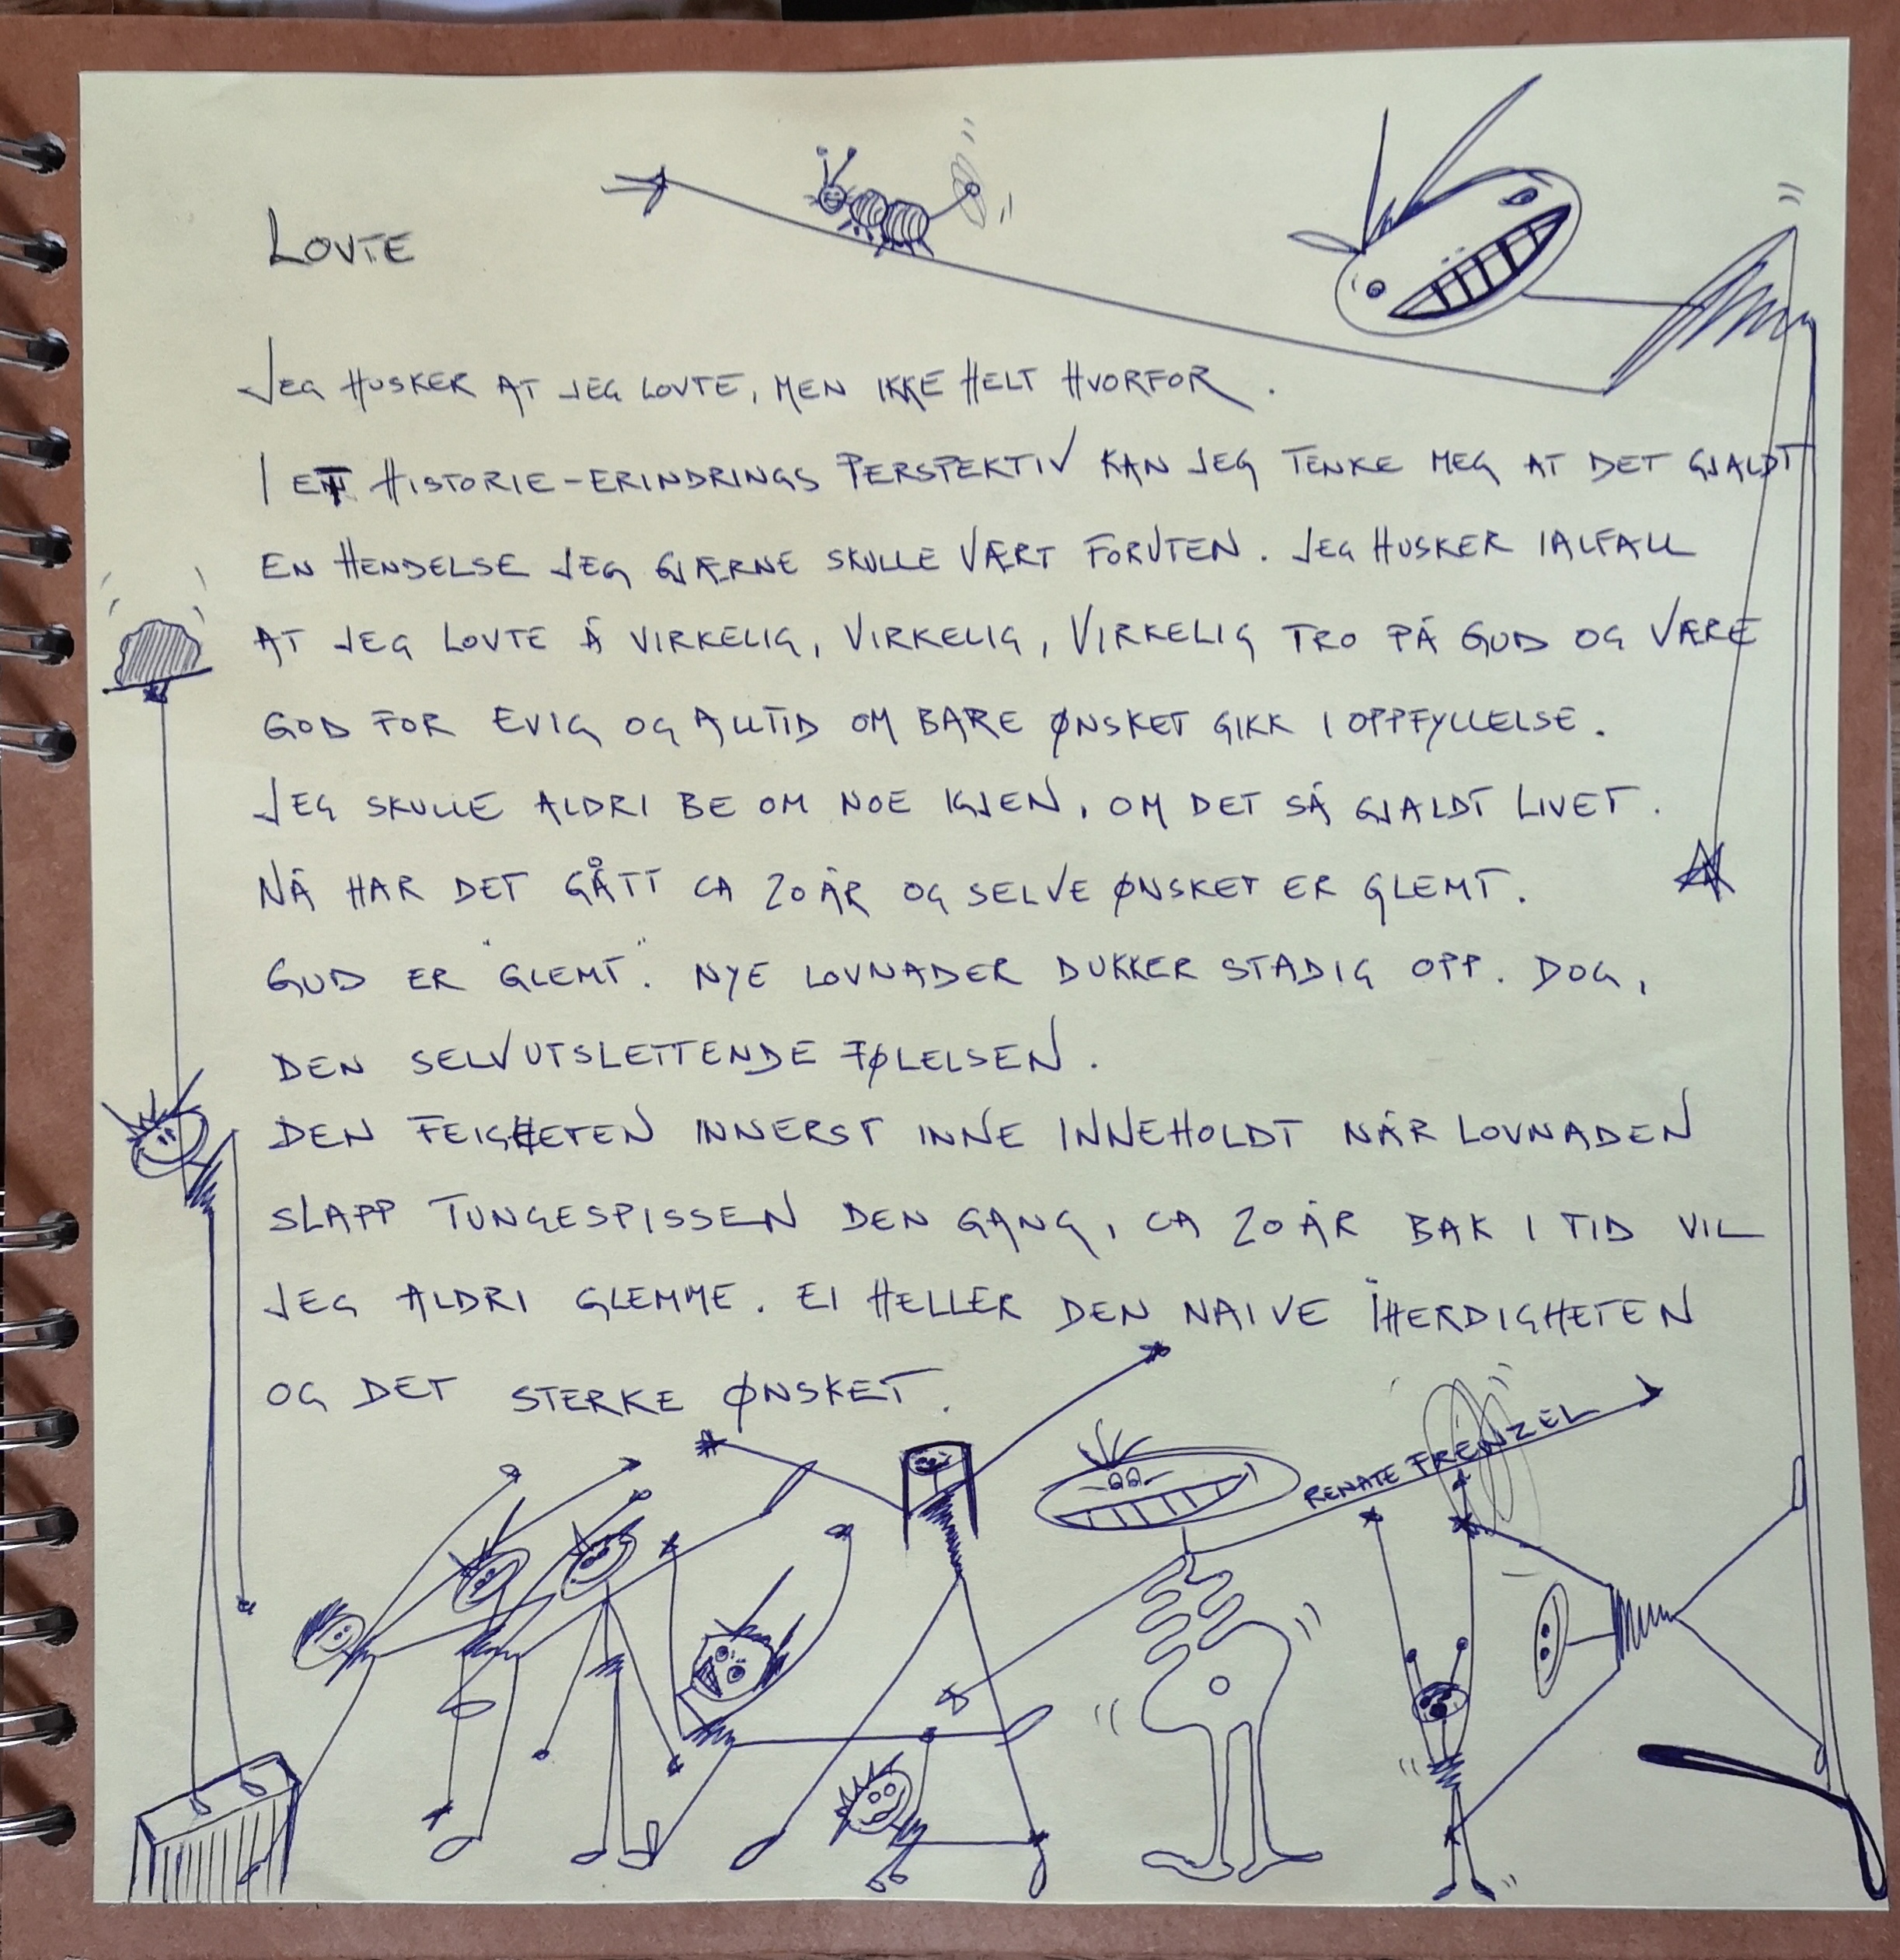 LOVTE
JEG HUSKER AT JEG LOVTE, MEN IKKE HELT HVORFOR.
I ET HISTORIE-ERINDRINGS PERSPEKTIV KAN JEG TENKE MEG AT DET GJALDT
EN HENDELSE JEG GJÆRNE SKULLE VÆRT FORUTEN. JEG HUSKER IALFALL
AT JEG LOVTE Å VIRKELIG, VIRKELIG, VIRKELIG TRO PÅ GUD OG VÆRE
GOD FOR EVIG OG ALLTID OM BARE ØNSKET GIKK I OPPFYLLELSE.
JEG SKULLE ALDRI BE OM NOE IGJEN, OM DET SÅ GJALDT LIVET.
NÅ HAR DET GÅTT CA 20 ÅR OG SELVE ØNSKET ER GLEMT.
GUD ER "GLEMT". NYE LOVNADER DUKKER STADIG OPP. DOG,
DEN SELVUTSLETTENDE FØLELSEN.
DEN FEIGHETEN INNERST INNE INNEHOLDT NÅR LOVNADEN
SLAPP TUNGESPISSEN DEN GANG, CA 20 ÅR BAK I TID VIL
JEG ALDRI GLEMME. EI HELLER DEN NAIVE IHERDIGHETEN
OG DET STERKE ØNSKET.
RENATE FRENZEL